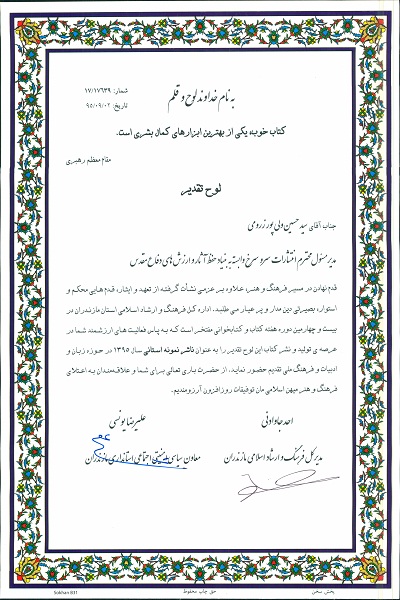 به نام خداوند لوح و قلم
شماره: ۱۷/۱۷۶۳۹
تاریخ: ۹۵/۰۹/۰۲
کتاب خوب، یکی از بهترین ابزارهای کمال بشری است.
مقام معظم رهبری
لوح تقدیر
جناب آقای سید حسین ولی پور زرومی
مدیر مسئول محترم انتشارات سرو سرخ وابسته به بنیاد حفظ آثار و ارزش های دفاع مقدس
قدم نهادن در مسیر فرهنگ و هنر، علاوه بر عزمی نشأت گرفته از تعهد و ایثار، قدم هایی محکم و
استوار، بصیرتی دین مدار و پر عیار می طلبد. اداره کل فرهنگ و ارشاد اسلامی استان مازندران در
بیست و چهارمین دوره هفته کتاب و کتابخوانی مفتخر است که به پاس فعالیت های ارزشمند شما در
عرصه ی تولید و نشر کتاب این لوح تقدیر را به عنوان ناشر نمونه استانی سال ۱۳۹۵ در حوزه زبان و
ادبیات و فرهنگ ملی تقدیم حضور نماید. از حضرت باری تعالی برای شما و علاقه مندان به اعتلای
فرهنگ و هنر میهن اسلامی مان توفیقات روزافزون آرزومندیم.
احد جاودانی
علیرضا یونسی
مدیر کل فرهنگ و ارشاد اسلامی مازندران
معاون سیاسی امنیتی اجتماعی استانداری مازندران
پخش سخن
حق چاپ محفوظ
Sokhan B31